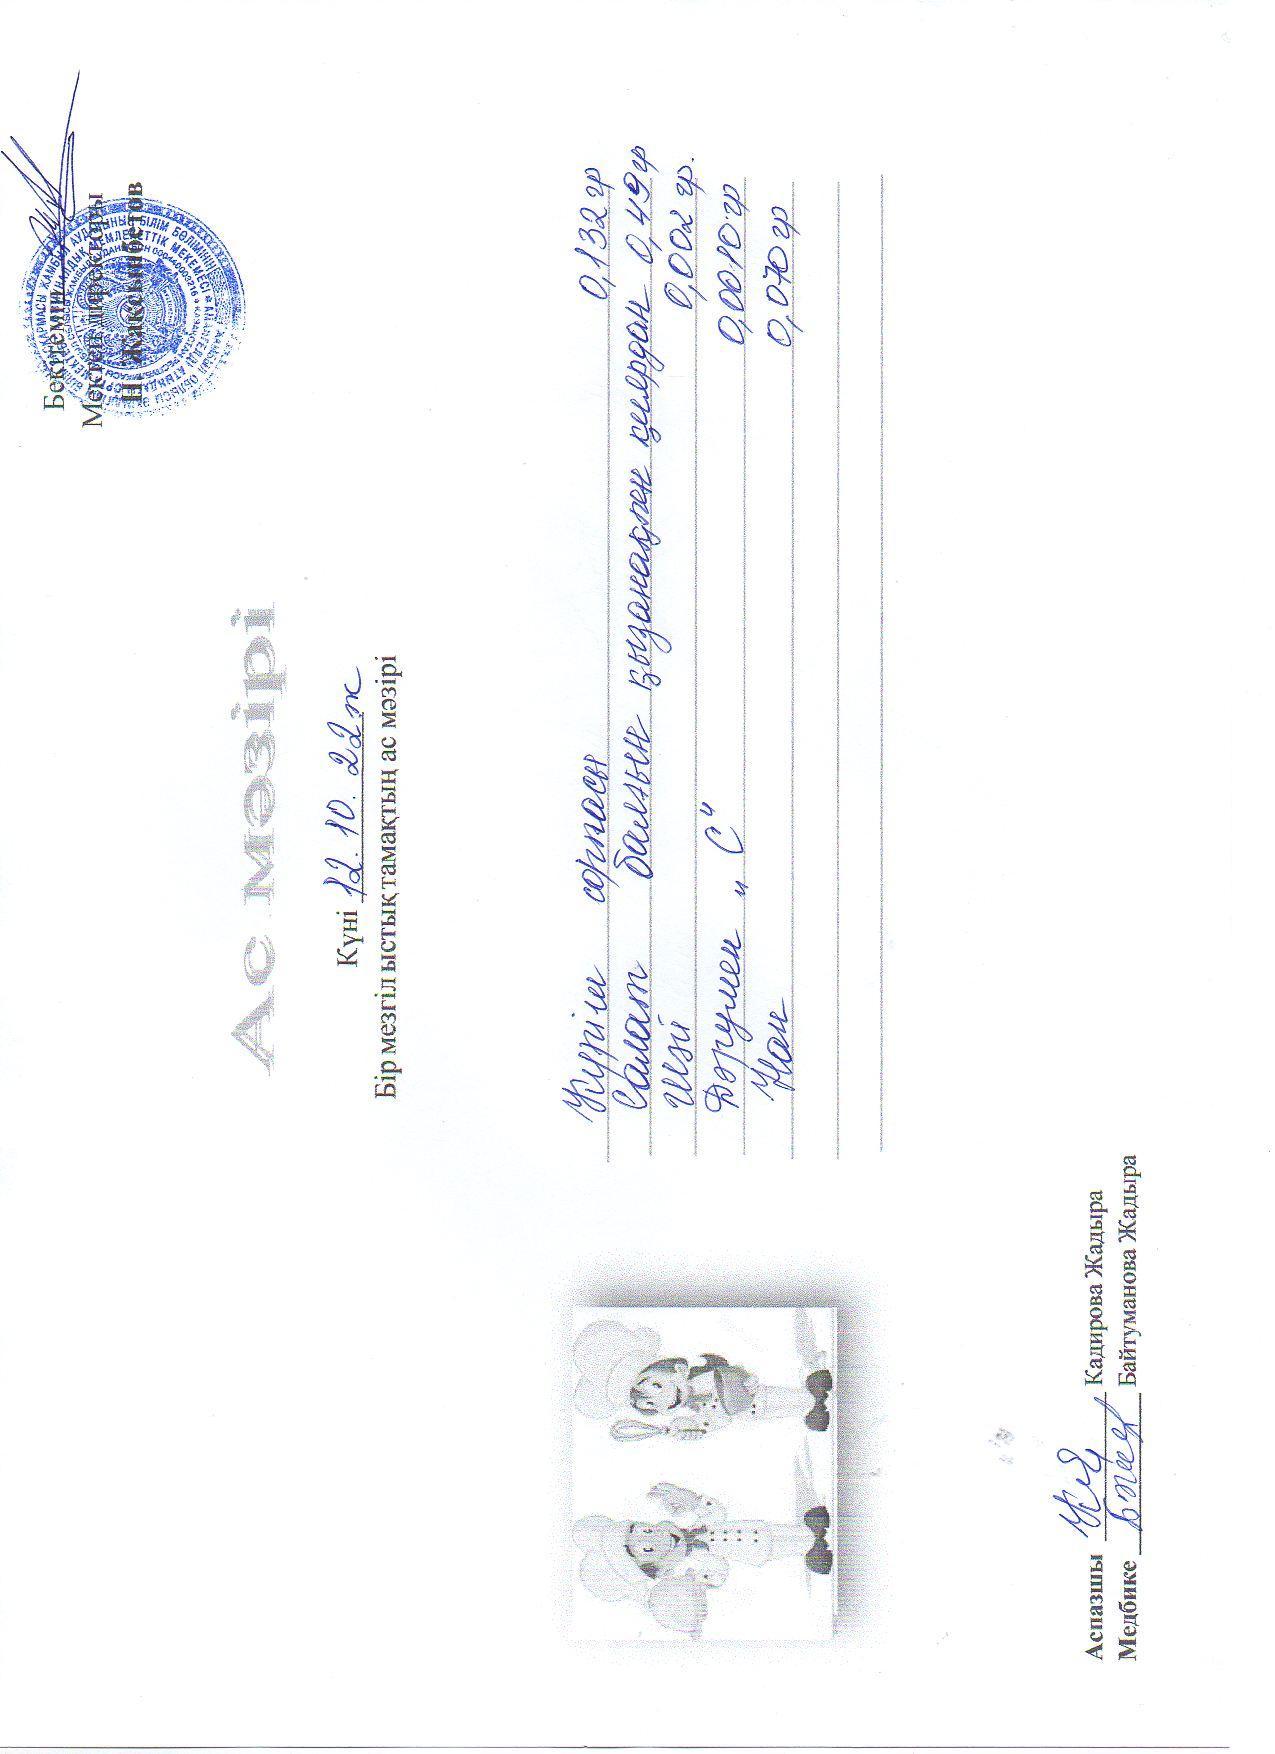 Бекітемін
Мектеп директоры
Жақсымбетов
Ас мәзірі
Күні 12.10.22ж
Бір мезгіл ыстық тамақтың ас мәзірі
Күріш сорпасы 0,132 гр
Салат балғын қызанақпен қиярдан 0,49 гр
Шай 0,002 гр.
Дәрумен "С" 0,0010 гр
Нан 0,070 гр
Аспазшы Кадирова Жадыра
Медбике Байтуманова Жадыра